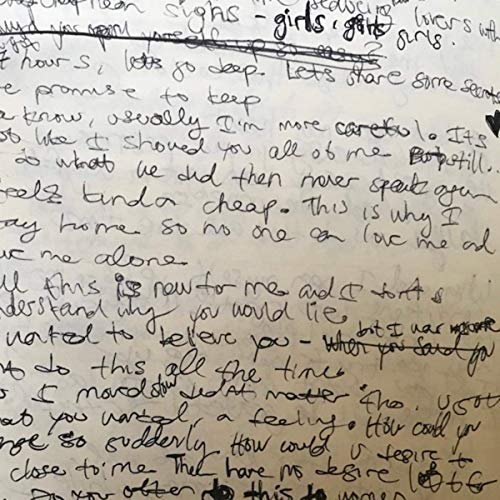 signs - girls, girls, girls.
hours, lets go deep. Lets share some secrets
promise to keep
know, usually I'm more careful. Its
like I showed you all of me still..
do what we did then never speak again
feelz kinda cheap. This is why I
stay home so no one can love me and
me alone.
this is new for me and I don't
understand why you would lie
wanted to believe you - but I was
to do this all the time.
I moved slow didnt matter tho. u got
what you wanted, a feeling. How could you
so suddenly How could u desire to
close to me Then have no desire
Do you often do this to women